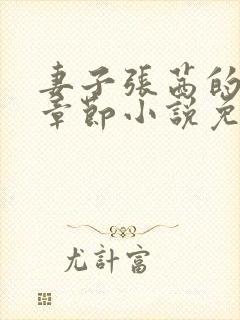 妻子張茜的
章節小說免
尤計富